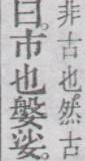 非古也。然古
曰。市也。媻娑。